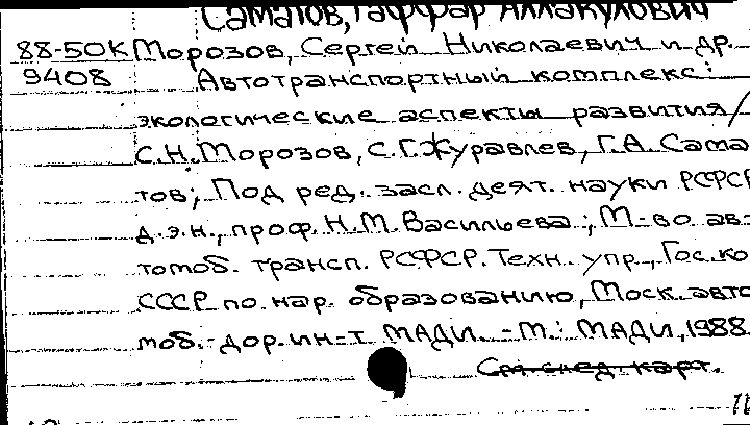 Саматов, Гаффар Аллакулович
88-50К Морозов, Сергей Николаевич и др.
9408 Автотранспортный комплекс:
экологические аспекты развития/
С.Н.Морозов, С.Г.Журавлев, Г.А.Сама-
тов; Под ред. засл. деят. науки РСФСР
д.э.н., проф. Н.М.Васильева; М-во ав-
томоб. трансп. РСФСР. Техн. упр., Гос. ко
СССР по нар. образованию, Моск. авто
моб.-дор. ин-т МАДИ. - М.: МАДИ, 1988
См след. карт.